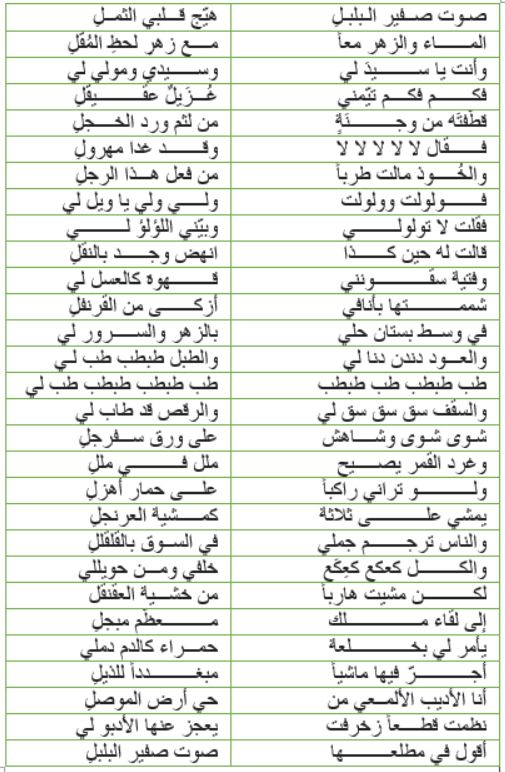 صوت صفير البلبلِ هيّج قلبي الثملِ
الماء والزهر معاً مع زهر لحظِ المُقلِ
وأنت يا سيدَ لي وسيدي ومولي لي
فكم فكم تيّمني غُزَيلٌ عقيقلِ
قطّفتَه من وجنَةٍ من لثم ورد الخجلِ
فقال لا لا لا لا لا وقد غدا مهرولِ
والخُوذ مالت طرباً من فعل هذا الرجلِ
فولولت وولولت ولي ولي يا ويل لي
فقلت لا تولولي وبيّني اللؤلؤ لي
قالت له حين كذا انهض وجد بالنقلِ
وفتية سقونني قهوة كالعسل لي
شممتها بأنافي أزكى من القرنفلِ
في وسط بستان حلي بالزهر والسرور لي
والعود دندن دنا لي والطبل طبطب طب لي
طب طبطب طب طبطب طب طبطب طبطب طب لي
والسقف سق سق سق لي والرقص قد طاب لي
شوى شوى وشاهش على ورق سفرجلِ
وغرد القمر يصيح ملل في مللِ
ولو تراني راكباً على حمار أهزلِ
يمشي على ثلاثة كمشية العرنجلِ
والناس ترجم جملي في السوق بالقلقللِ
والكل كعكع كعِكَع خلفي ومن حويللي
لكن مشيت هارباً من خشية العقنقلِ
إلى لقاء ملك معظّم مبجلِ
يأمر لي بخلعة حمراء كالدم دملي
أجرّ فيها ماشياً مبغدداً للذيلِ
أنا الأديب الألمعي من حي أرض الموصلِ
نظمت قطعاً زخرفت يعجز عنها الأدبو لي
أقول في مطلعها صوت صفير البلبلِ